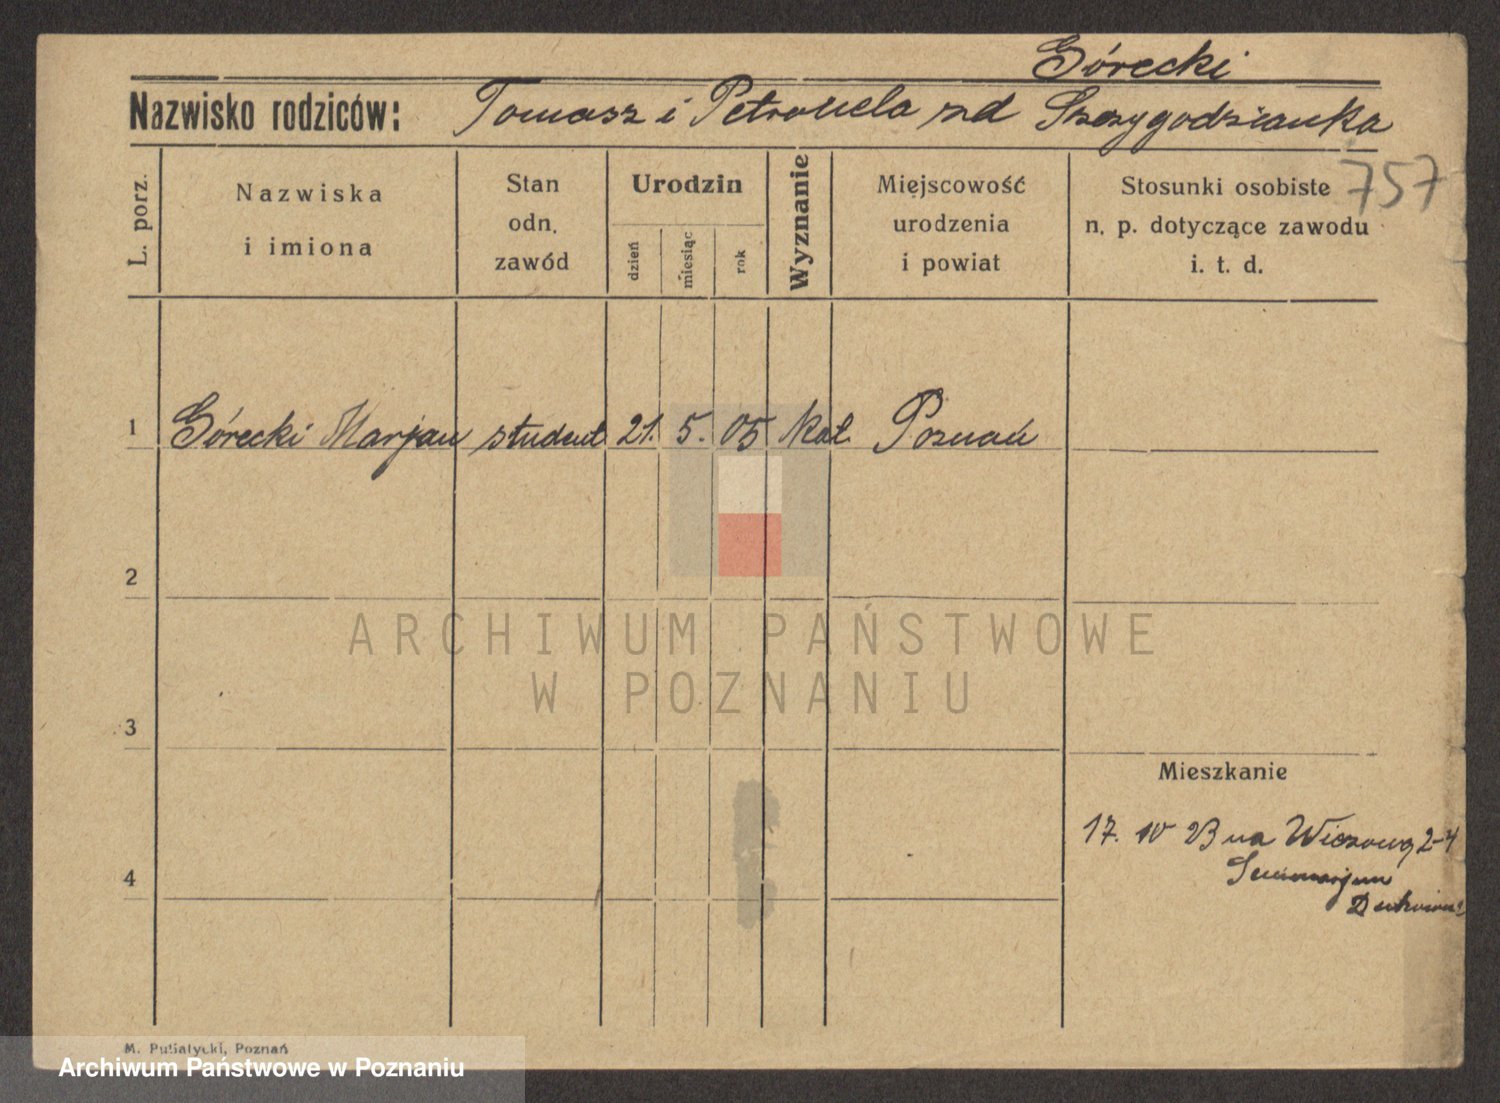 Górecki
Nazwisko rodziców: Tomasz i Petronela zd Szczygodzianka
757
L. porz.
Nazwiska
i imiona
Stan
odn.
zawód
Urodzin
dzień
miesiąc
rok
Wyznanie
Miejscowość
urodzenia
i powiat
Stosunki osobiste
n. p. dotyczące zawodu
i. t. d.
1 Górecki Marjan student 21. 5. 05 kat. Poznań
2
ARCHIWUM PAŃSTWOWE
W POZNANIU
3
Mieszkanie
17. 10 23 na Wieżową 2-4
Seminarjum
4
Duchowne
M. Putiatycki, Poznań
Archiwum Państwowe w Poznaniu